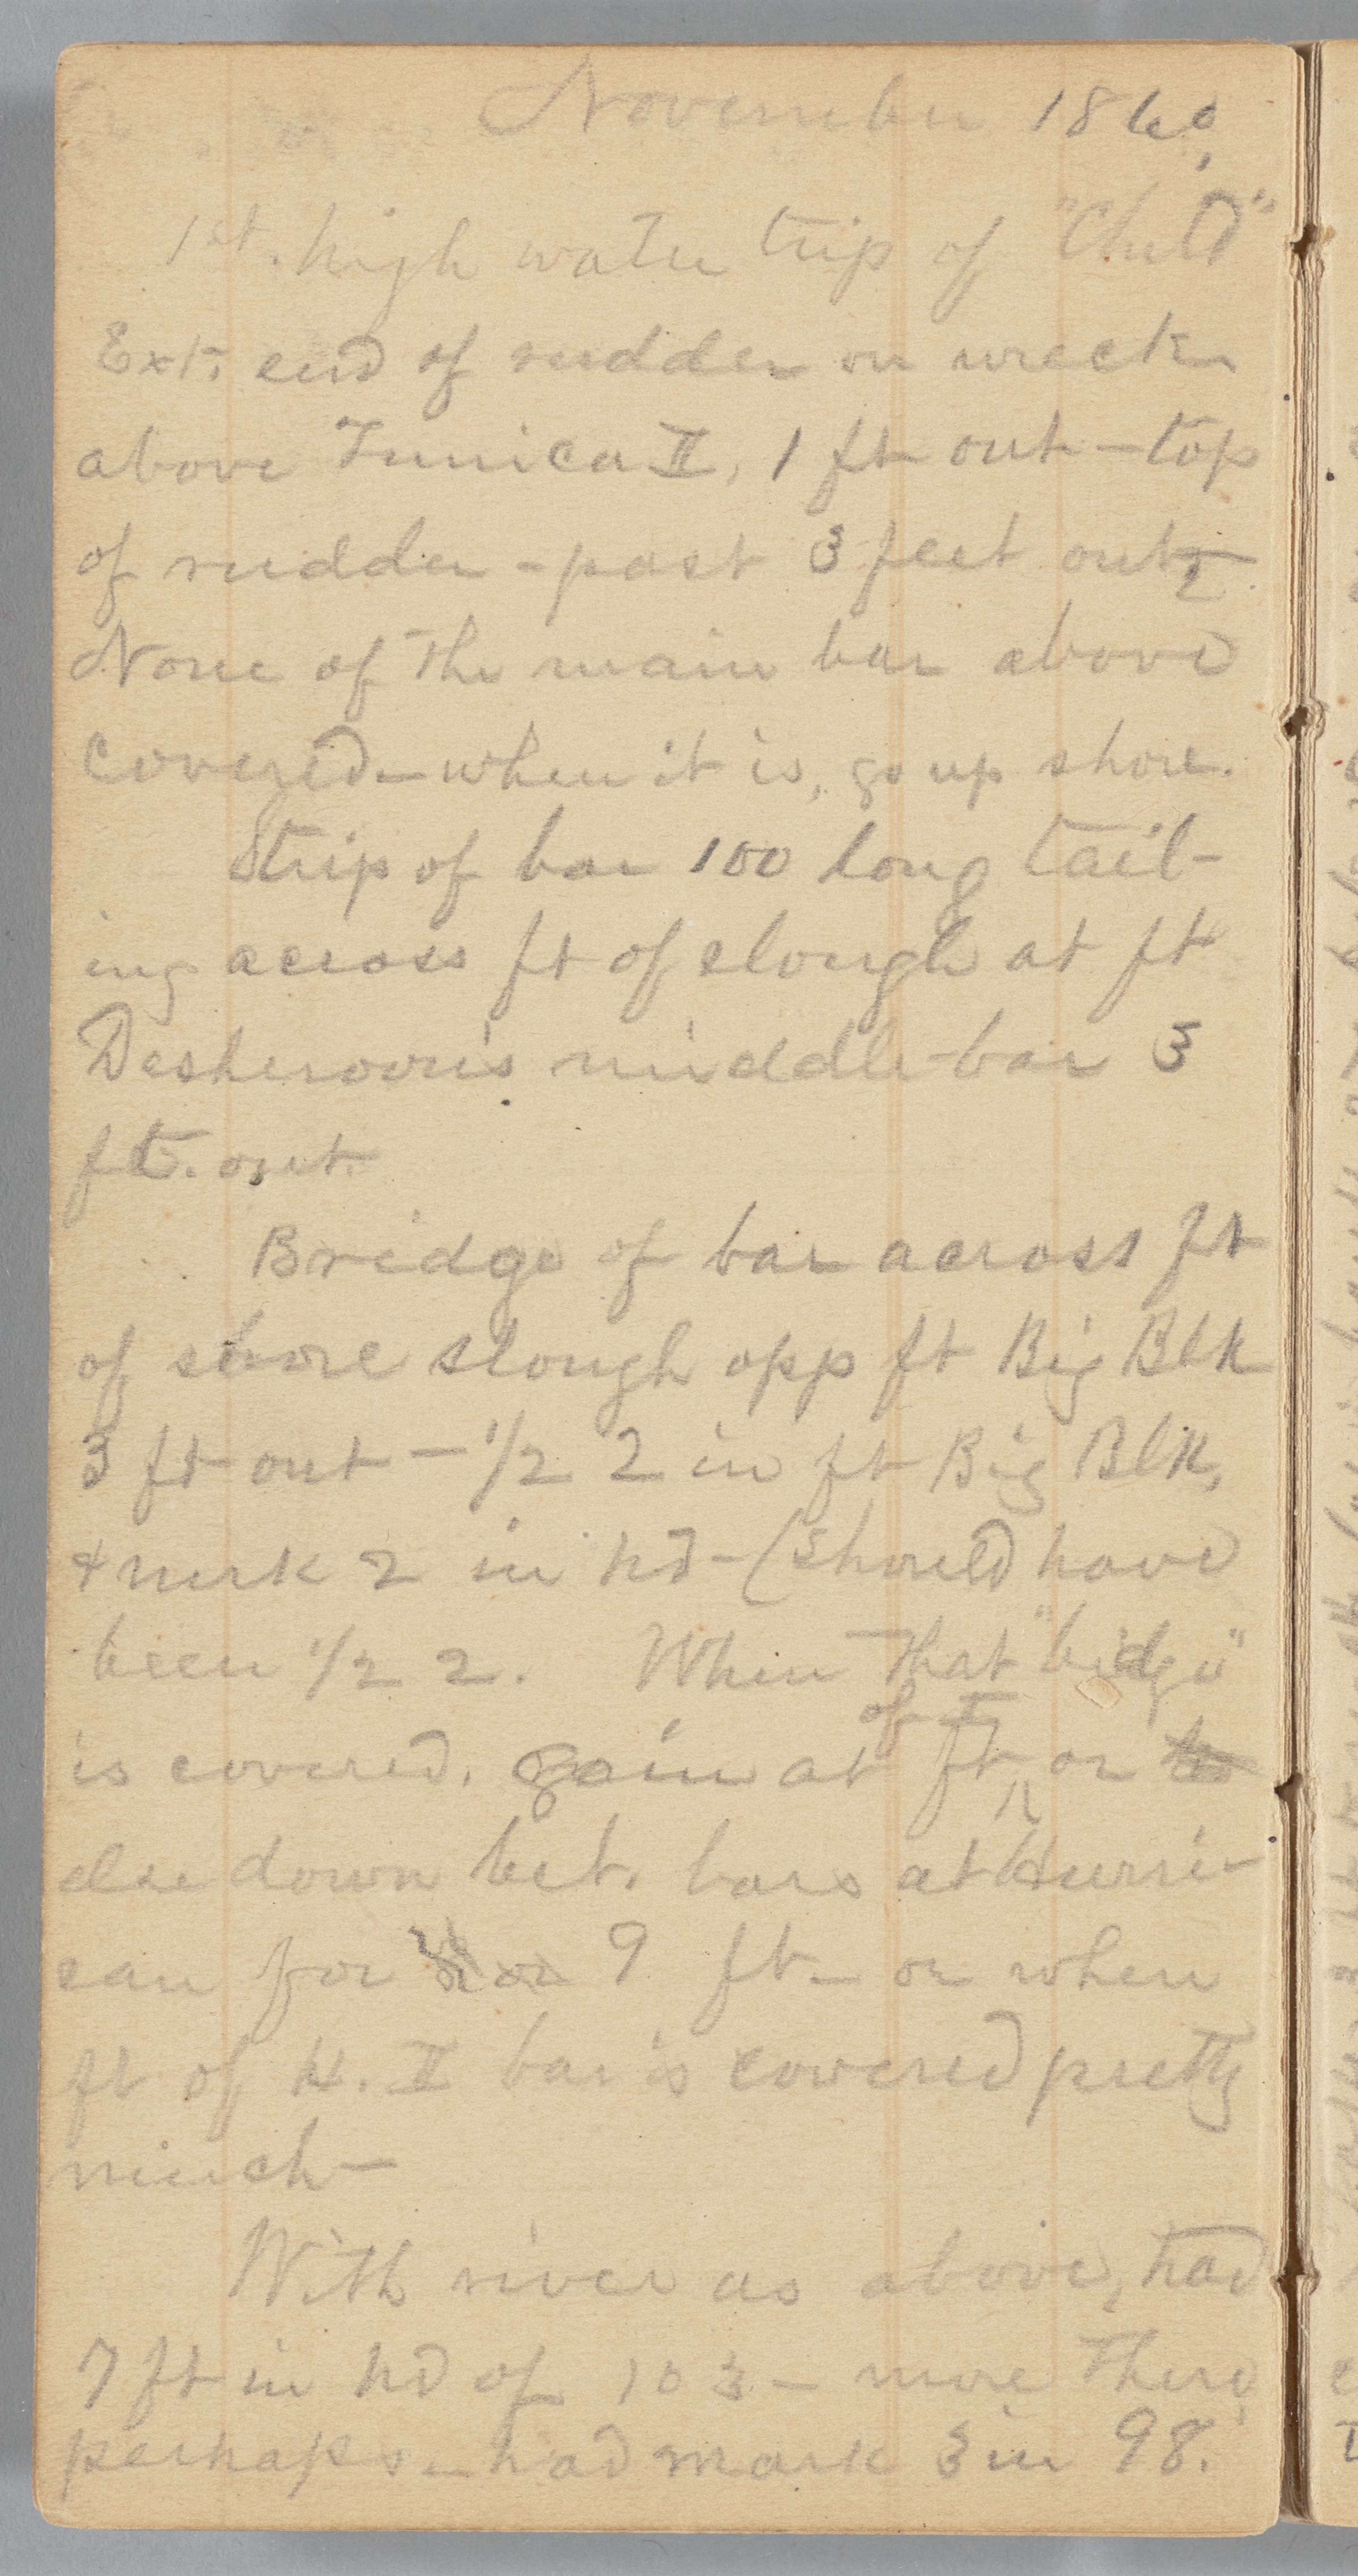 November 1860.
1st. high water trip of "Child"
Ext. end of rudder on wreck
above Tunica II, 1 ft out — top
of rudder-post 3 feet out
None of the main bar above
covered — when it is, go up shore.
Strip of bar 100 long tail-
ing across ft of slough at ft
middle-bar 3
ft. out.
Bridge of bar across ft
of shore slough opp ft Big Blk
3 ft out — 1/2 2 in ft Big Blk,
& mrk 2 in hd — (should have
been 1/2 2. When that "bidge"
is covered, go in at ft of I, or
else down bet. bars at Hurri-
can for 9 ft — or when
ft of H. II bar is covered pretty
much —
With river as above, had
7 ft in hd of 103 — more there,
perhaps — had mark 3 in 98.